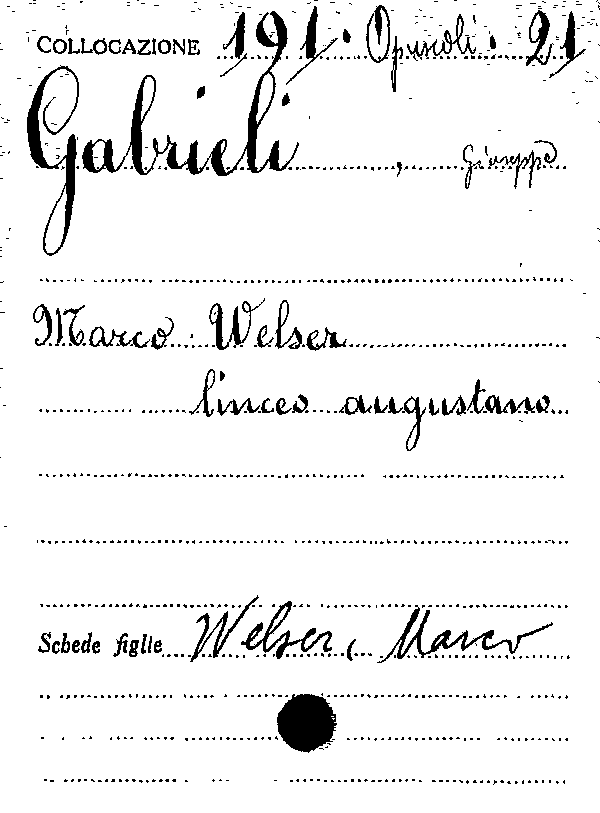 COLLOCAZIONE 191. Opuscoli. 21
Gabrieli, Giuseppe
Marco Welser
linceo augustano
Schede figlie Welser, Marco